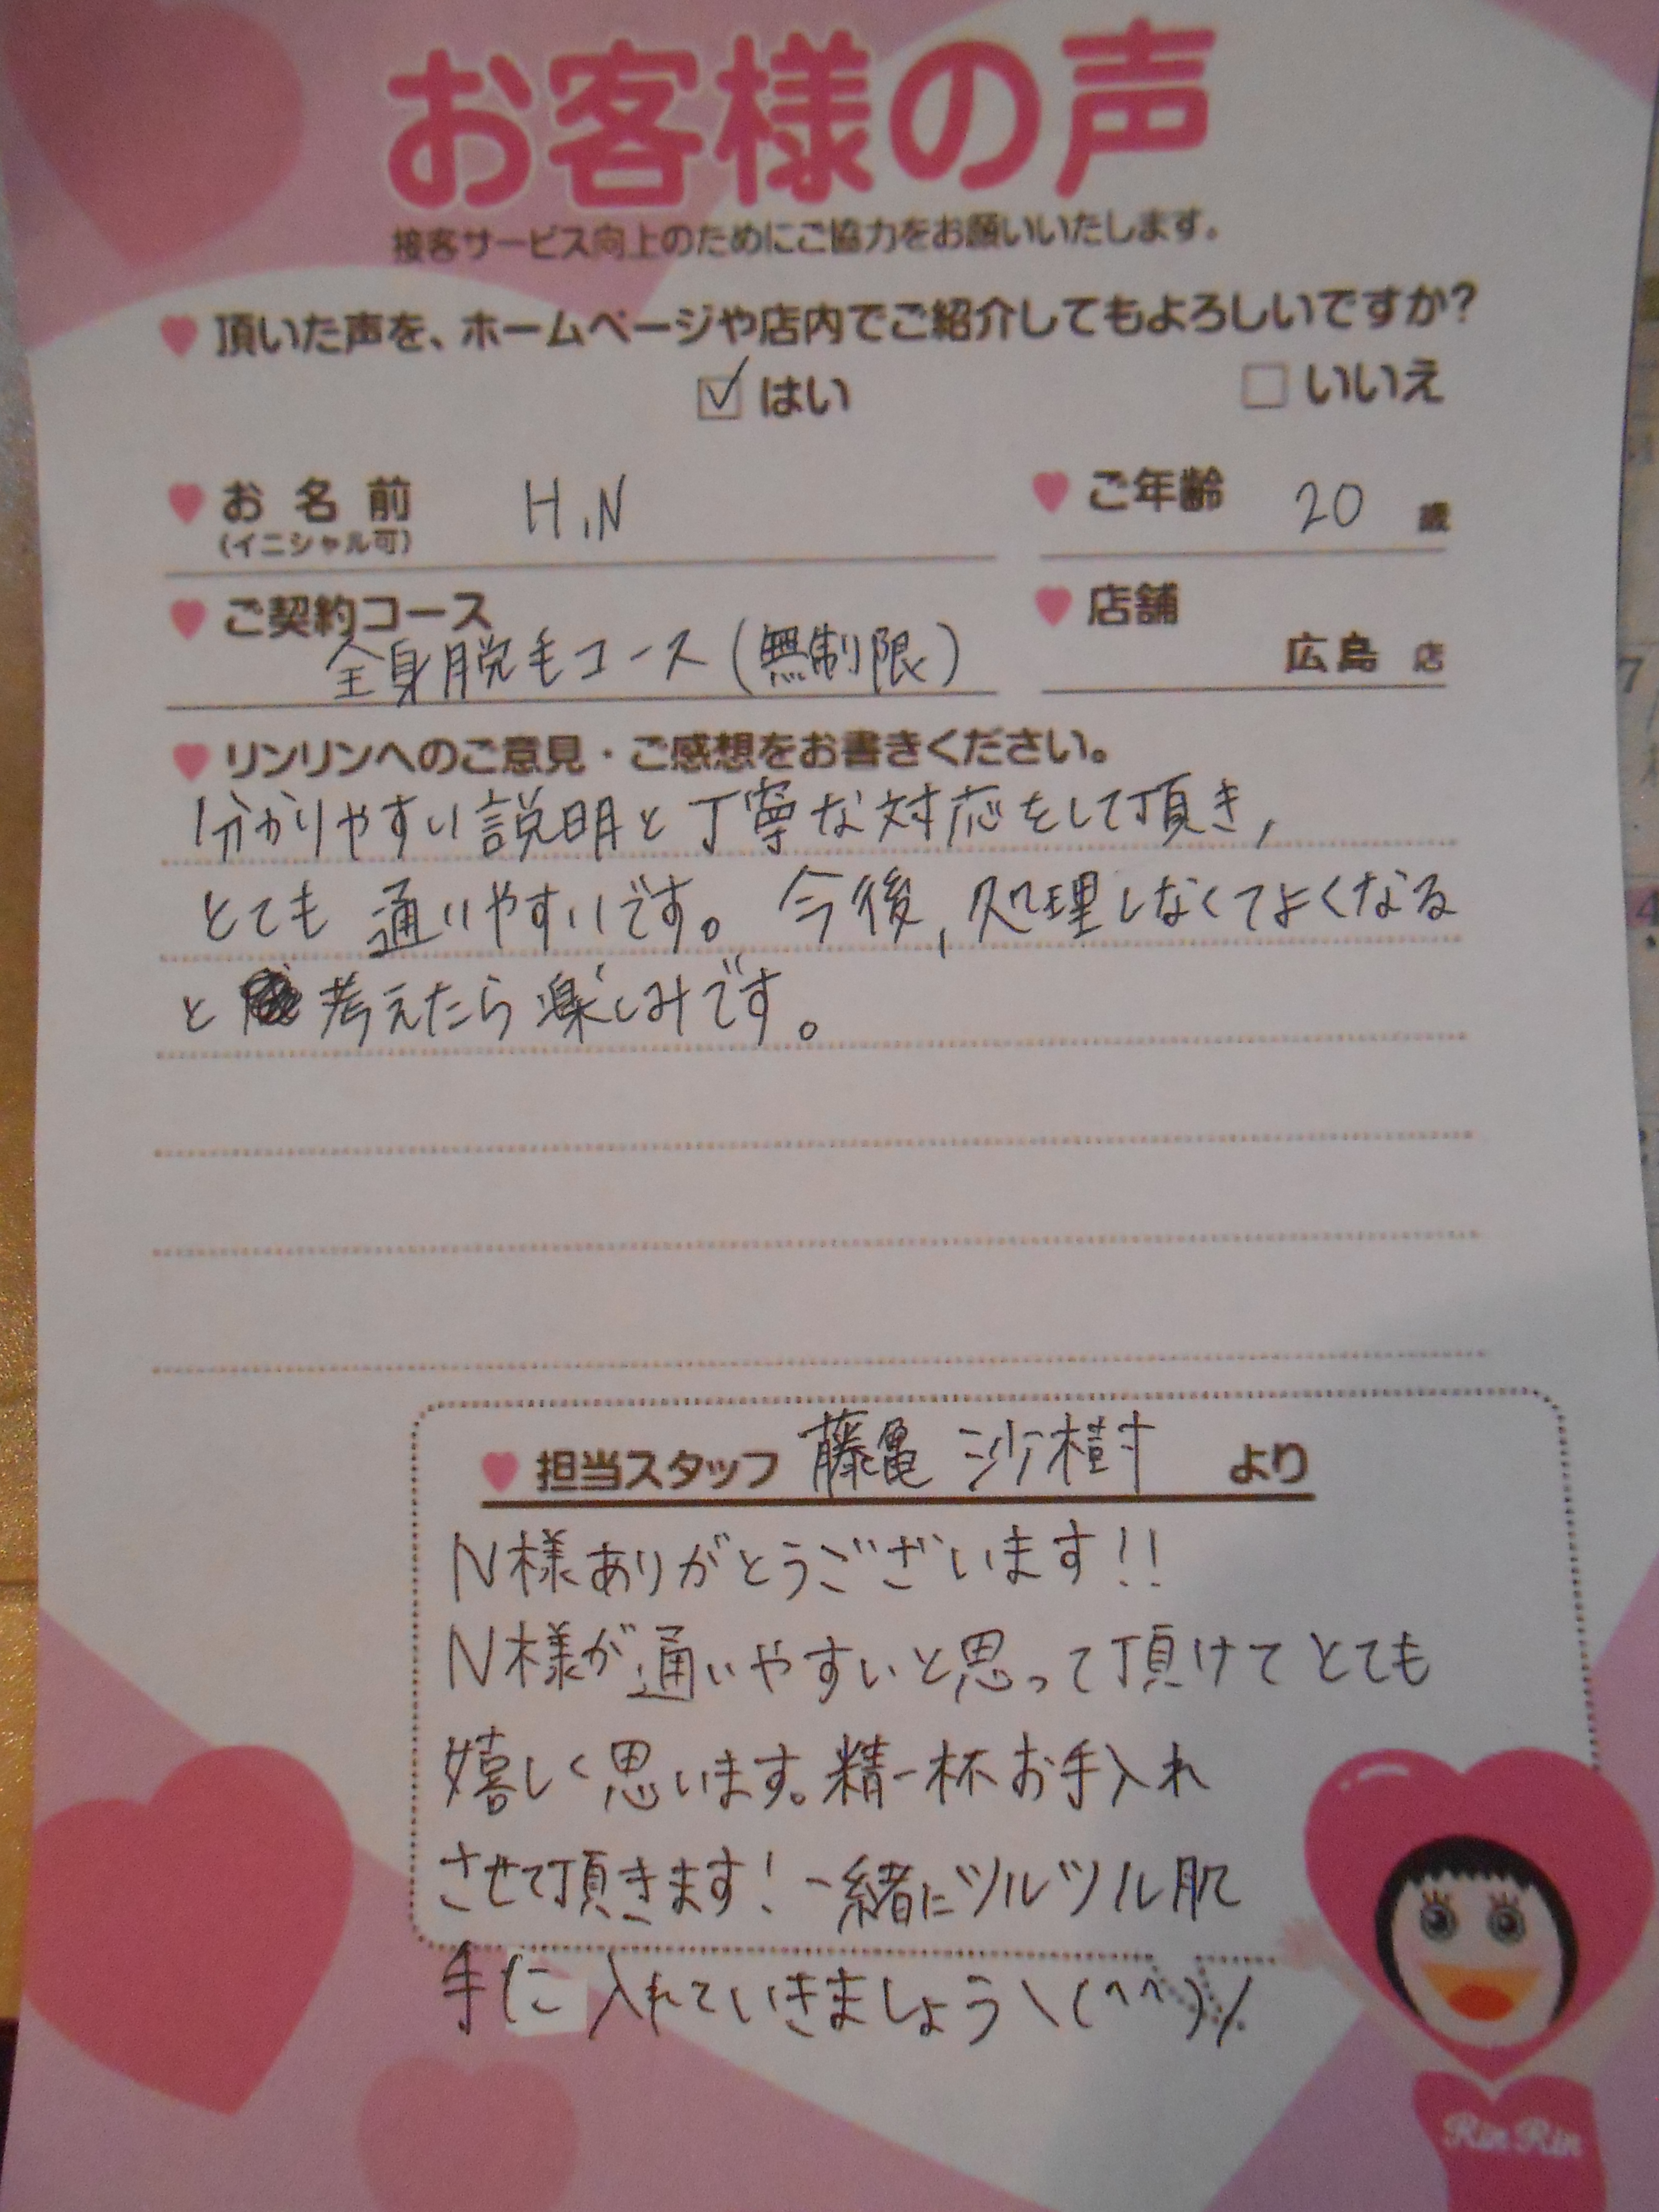 お客様の声
接客サービス向上のためにご協力をお願いいたします。
頂いた声を、ホームページや店内でご紹介してもよろしいですか?
はい いいえ
お名前 H,N ご年齢 20 歳
(イニシャル可)
ご契約コース 店舗
全身脱毛コース(無制限) 広島 店
リンリンへのご意見・ご感想をお書きください。
分かりやすい説明と丁寧な対応をして頂き,
とても通いやすいです。今後,処理しなくてよくなる
と考えたら楽しみです。
担当スタッフ 藤亀 沙樹 より
N様ありがとうございます!!
N様が通いやすいと思って頂けてとても
嬉しく思います。精一杯お手入れ
させて頂きます!一緒にツルツル肌
手に入れていきましょう\(^^)/
Rin Rin